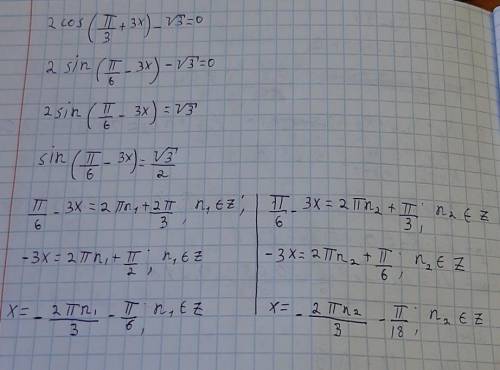 2 cos(π/3 + 3x) - √3 = 0
2 sin(π/6 - 3x) - √3 = 0
2 sin(π/6 - 3x) = √3
sin(π/6 - 3x) = √3/2
π/6 - 3x = 2πn₁ + 2π/3, n₁ ∈ Z;
-3x = 2πn₁ + π/2; n₁ ∈ Z
x = - 2πn₁/3 - π/6; n₁ ∈ Z
π/6 - 3x = 2πn₂ + π/3; n₂ ∈ Z
-3x = 2πn₂ + π/6; n₂ ∈ Z
x = - 2πn₂/3 - π/18; n₂ ∈ Z